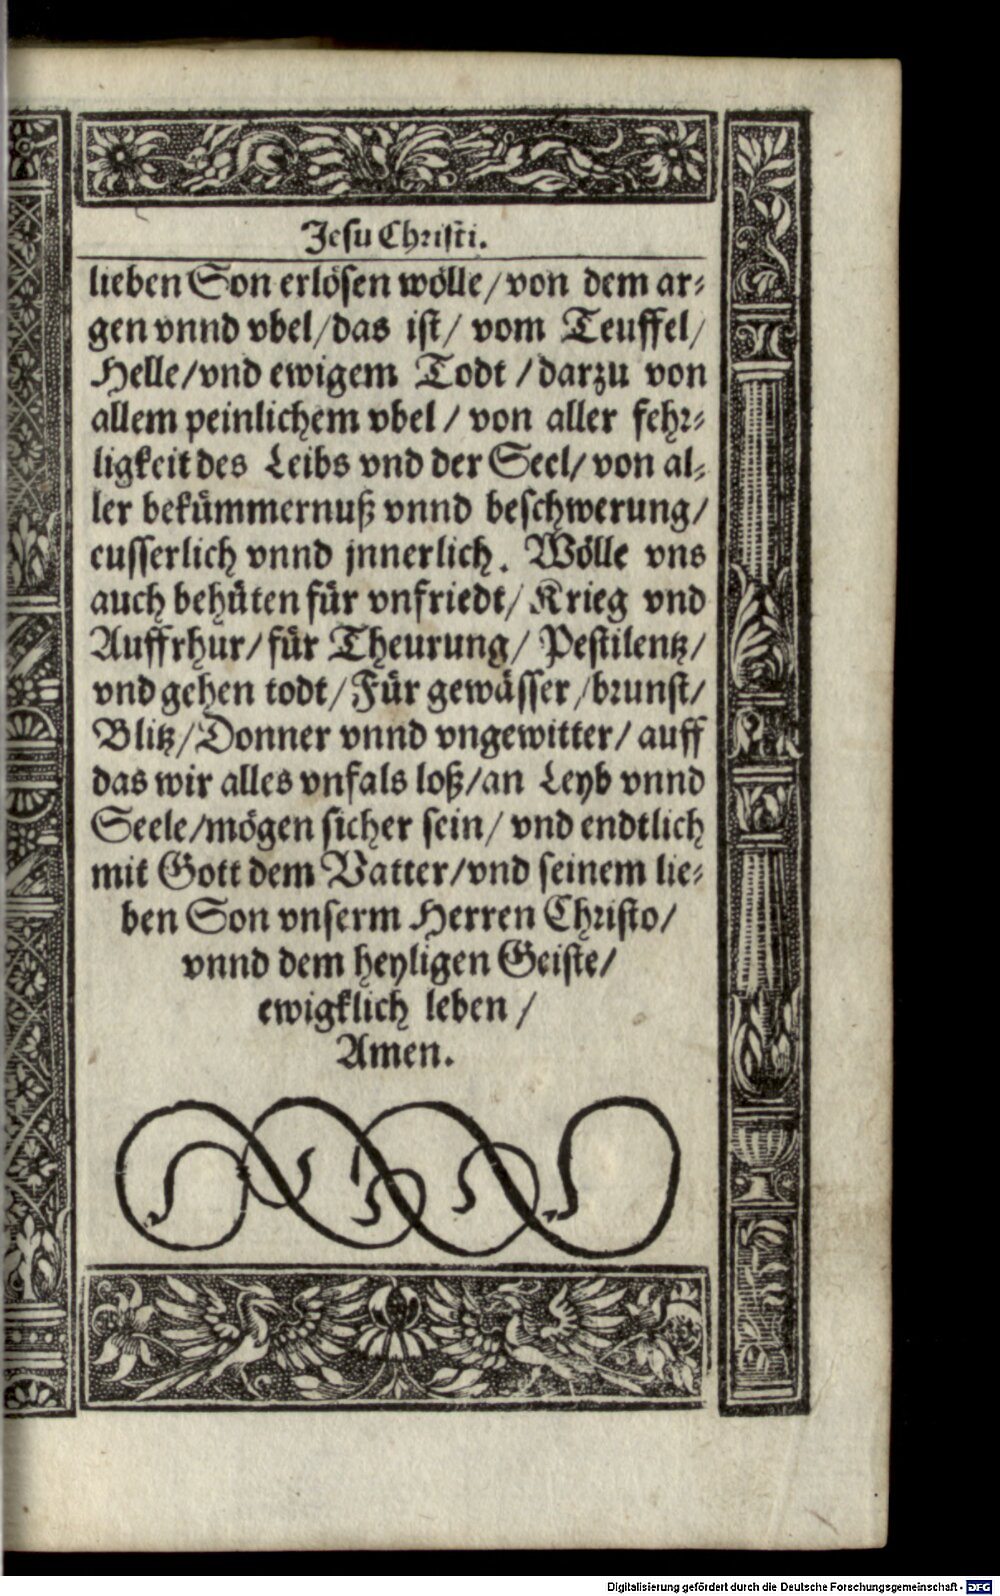 Jesu Christi.
lieben Son erlösen wölle/ von dem ar⸗
gen vnnd vbel/ das ist/ vom Teuffel/
Helle/ vnd ewigem Todt / darzu von
allem peinlichem vbel / von aller fehr⸗
ligkeit des Leibs vnd der Seel/ von al⸗
ler bekümmernuß vnnd beschwerung/
eusserlich vnnd jnnerlich. Wölle vns
auch behüten für vnfriedt/ Krieg vnd
Auffrhur/ für Theurung/ Pestilentz/
vnd gehen todt/ Für gewässer /brunst/
Blitz/ Donner vnnd vngewitter/ auff
das wir alles vnfals loß/ an Leyb vnnd
Seele/ mögen sicher sein/ vnd endtlich
mit Gott dem Vatter/ vnd seinem lie⸗
ben Son vnserm Herren Christo/
vnnd dem heyligen Geiste/
ewigklich leben /
Amen.
Digitalisierung gefördert durch die Deutsche Forschungsgemeinschaft - DFG